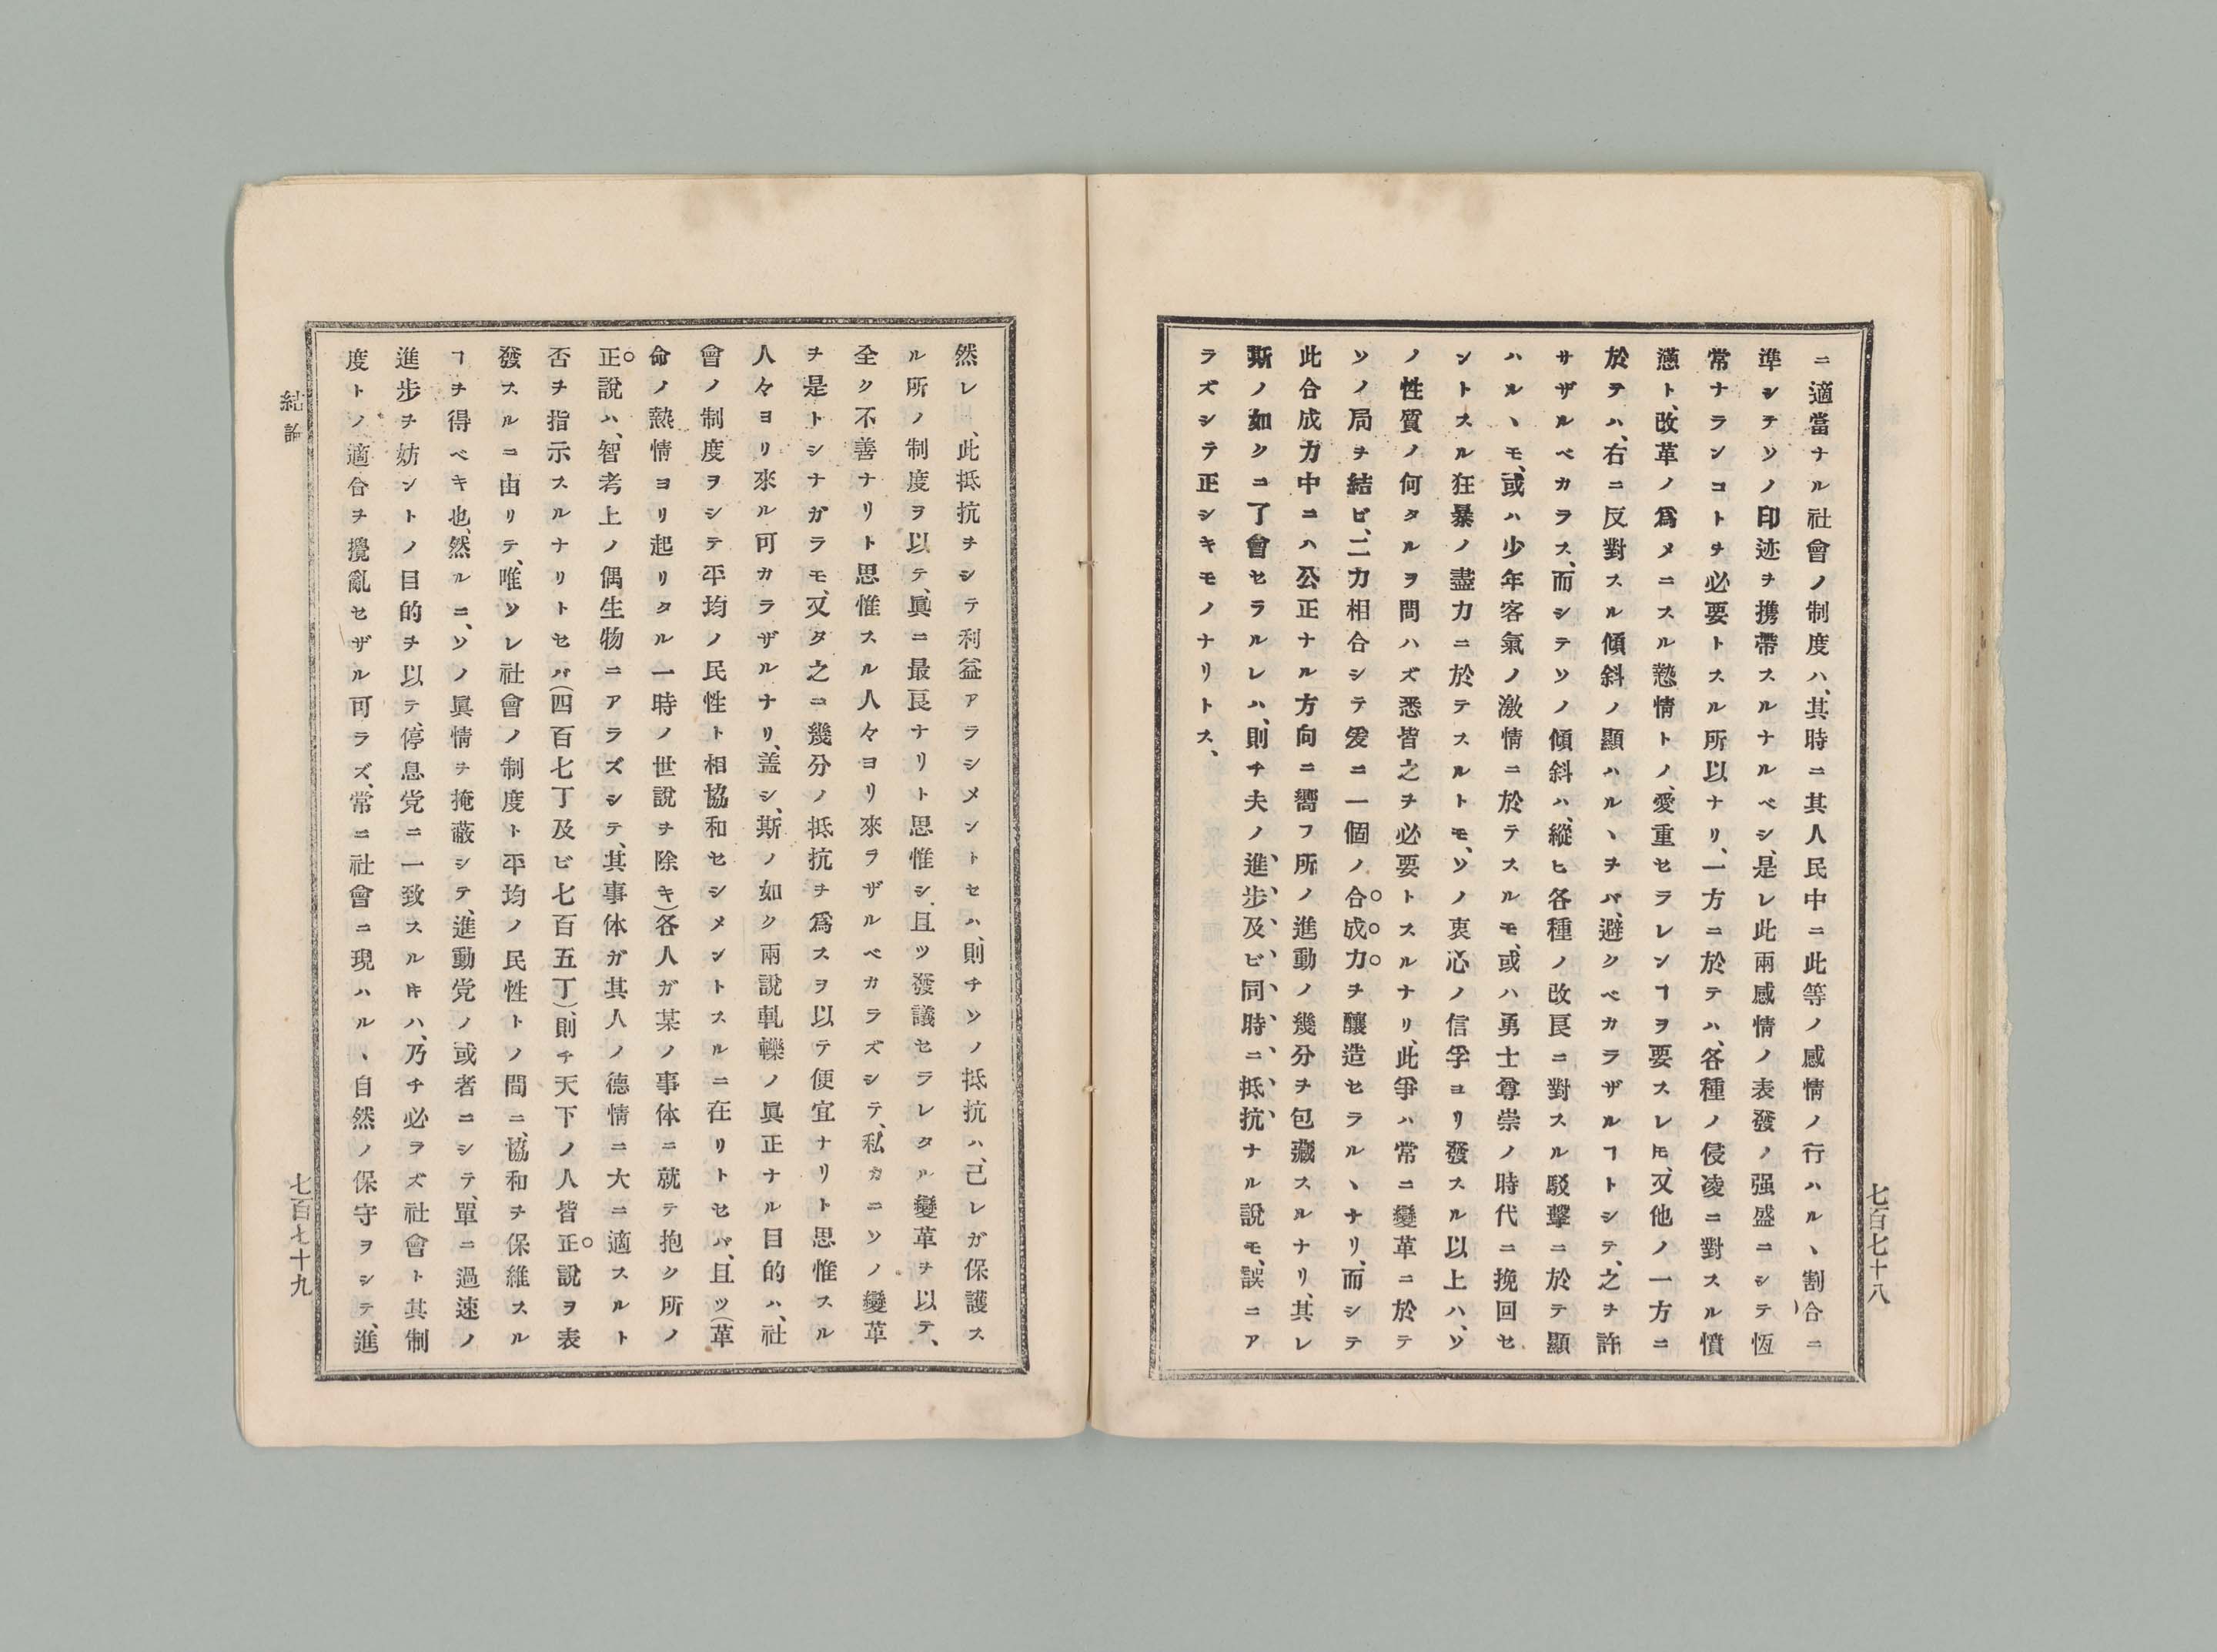 七百七十八
ニ適當ナル社會ノ制度ハ、其時ニ其人民中ニ此等ノ感情ノ行ハルヽ割合ニ
準シテソノ印迹ヲ携帶スルナルベシ、是レ此兩感情ノ表發ノ强盛ニシテ恆
常ナランコトヲ必要トスル所以ナリ、一方ニ於テハ、各種ノ侵凌ニ對スル憤
懣ト、改革ノ爲メニスル懃情トノ、愛重セラレンヿヲ要スレ𪜈、又他ノ一方ニ
於テハ、右ニ反對スル傾斜ノ顯ハルヽヲバ、避クベカラザルヿトシテ、之ヲ許
サザルベカラス、而シテソノ傾斜ハ、縱ヒ各種ノ改良ニ對スル駁擊ニ於テ顯
ハルヽモ、或ハ少年客氣ノ激情ニ於テスルモ、或ハ勇士尊崇ノ時代ニ挽回セ
ントスル狂暴ノ盡力ニ於テスルトモ、ソノ衷心ノ信孚ヨリ發スル以上ハ、ソ
ノ性質ノ何タルヲ問ハズ悉皆之ヲ必要トスルナリ、此爭ハ常ニ變革ニ於テ
ソノ局ヲ結ビ、二力相合シテ爰ニ一個ノ合成力ヲ釀造セラルヽナリ、而シテ
此合成力中ニハ公正ナル方向ニ嚮フ所ノ進動ノ幾分ヲ包藏スルナリ、其レ
斯ノ如クニ了會セラルレハ、則チ夫ノ進步及ビ同時ニ抵抗ナル說モ、誤ニア
ラズシテ正シキモノナリトス、
然レ𪜈、此抵抗ヲシテ利益アラシメントセハ、則チソノ抵抗ハ、己レガ保護ス
ル所ノ制度ヲ以テ、眞ニ最良ナリト思惟シ、且ツ發議セラレタル變革ヲ以テ、
全ク不善ナリト思惟スル人々ヨリ來ラザルベカラズシテ、私カニソノ變革
ヲ是トシナガラモ、又タ之ニ幾分ノ抵抗ヲ爲スヲ以テ便宜ナリト思惟スル
人々ヨリ來ル可カラザルナリ、盖シ、斯ノ如ク兩說軋轢ノ眞正ナル目的ハ、社
會ノ制度ヲシテ平均ノ民性ト相協和セシメントスルニ在リトセバ、且ツ(革
命ノ熱情ヨリ起リタル一時ノ世說ヲ除キ)各人ガ某ノ事体ニ就テ抱ク所ノ
正說ハ、智考上ノ偶生物ニアラズシテ、其事体ガ其人ノ德情ニ大ニ適スルト
否ヲ指示スルナリトセバ(四百七丁及ビ七百五丁)則チ天下ノ人皆正說ヲ表
發スルニ由リテ、唯ソレ社會ノ制度ト平均ノ民性トノ間ニ、協和ヲ保維スル
ヿヲ得ベキ也、然ルニ、ソノ眞情ヲ掩蔽シテ、進動党ノ或者ニシテ、單ニ過速ノ
進步ヲ妨ントノ目的ヲ以テ、停息党ニ一致スル𪜈ハ、乃チ必ラズ社會ト其制
度トノ適合ヲ攪亂セザル可ラズ、常ニ社會ニ現ハルヽ自然ノ保守ヲシテ、進
結論
七百七十九